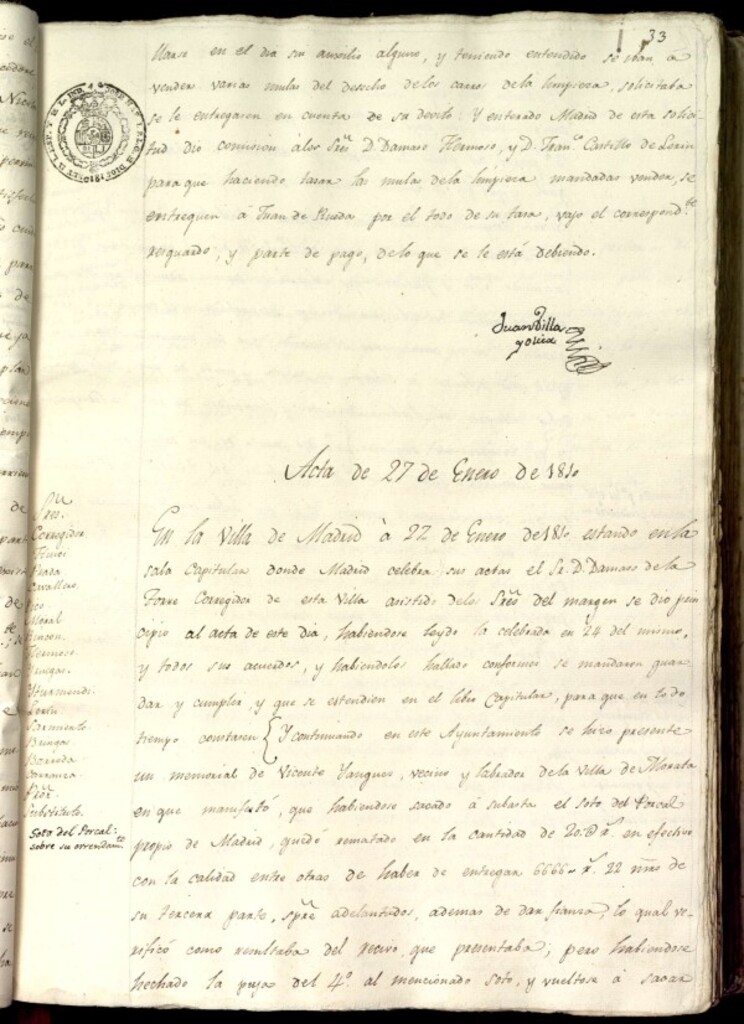 33
llarse en el dia sin auxilio alguno, y teniendo entendido se iban á
vender varias mulas del desecho de los carros de la limpieza, solicitaba
se le entregasen en cuenta de su devito: Y enterado Madrid de esta solici-
tud dio comision alos Sres D. Damaso Hermoso, y D. Franco Castillo de Lerin
para que haciendo tasar las mulas dela limpieza mandadas vender, se
entreguen á Juan de Rueda por el todo de su tasa, vajo el correspondte
resguardo, y parte de pago, delo que se le está debiendo.
Juan Villa
y olier
Acta de 27 de Enero de 1810
En la Villa de Madrid à 27 de Enero de 1810 estando en la
sala Capitular donde Madrid celebra sus actas el Sr. D. Damaso de la
Torre Corregidor de esta Villa asistido delos Sres del margen se dio prin
cipio al acta de este dia, habiendose leydo la celebrada en 24 del mismo,
y todos sus acuerdos, y habiendolos hallado conformes se mandaron guar
dar y cumplir, y que se estendiesen en el libro Capitular, para que en todo
tiempo constasen { Y continuando en este Ayuntamiento se hizo presente
un memorial de Vicente Yangues, vecino y labrador de la Villa de Morata
en que manifestó, que habiendose sacado á subasta el soto del Porcal
propio de Madrid, quedó rematado en la cantidad de 20.@ rs. en efectivo
con la calidad entre otras de haber de entregar 6666 rs. 22 mrs de
su tercera parte, spre adelantados, ademas de dar fianza, lo qual ve-
rificó como resultaba del recivo que presentaba; pero habiendose
hechado la puja del 4º. al mencionado soto, y vueltose á sacar
Sres.
Corregidor
Prada
Cavallero
Moral
Rincon
Hermoso
Venegas
Yturmendi
Lerin
Sarmiento
Barreda
Carranza
Pror.
Substituto.
Soto del Porcal:
sobre su arrendamto